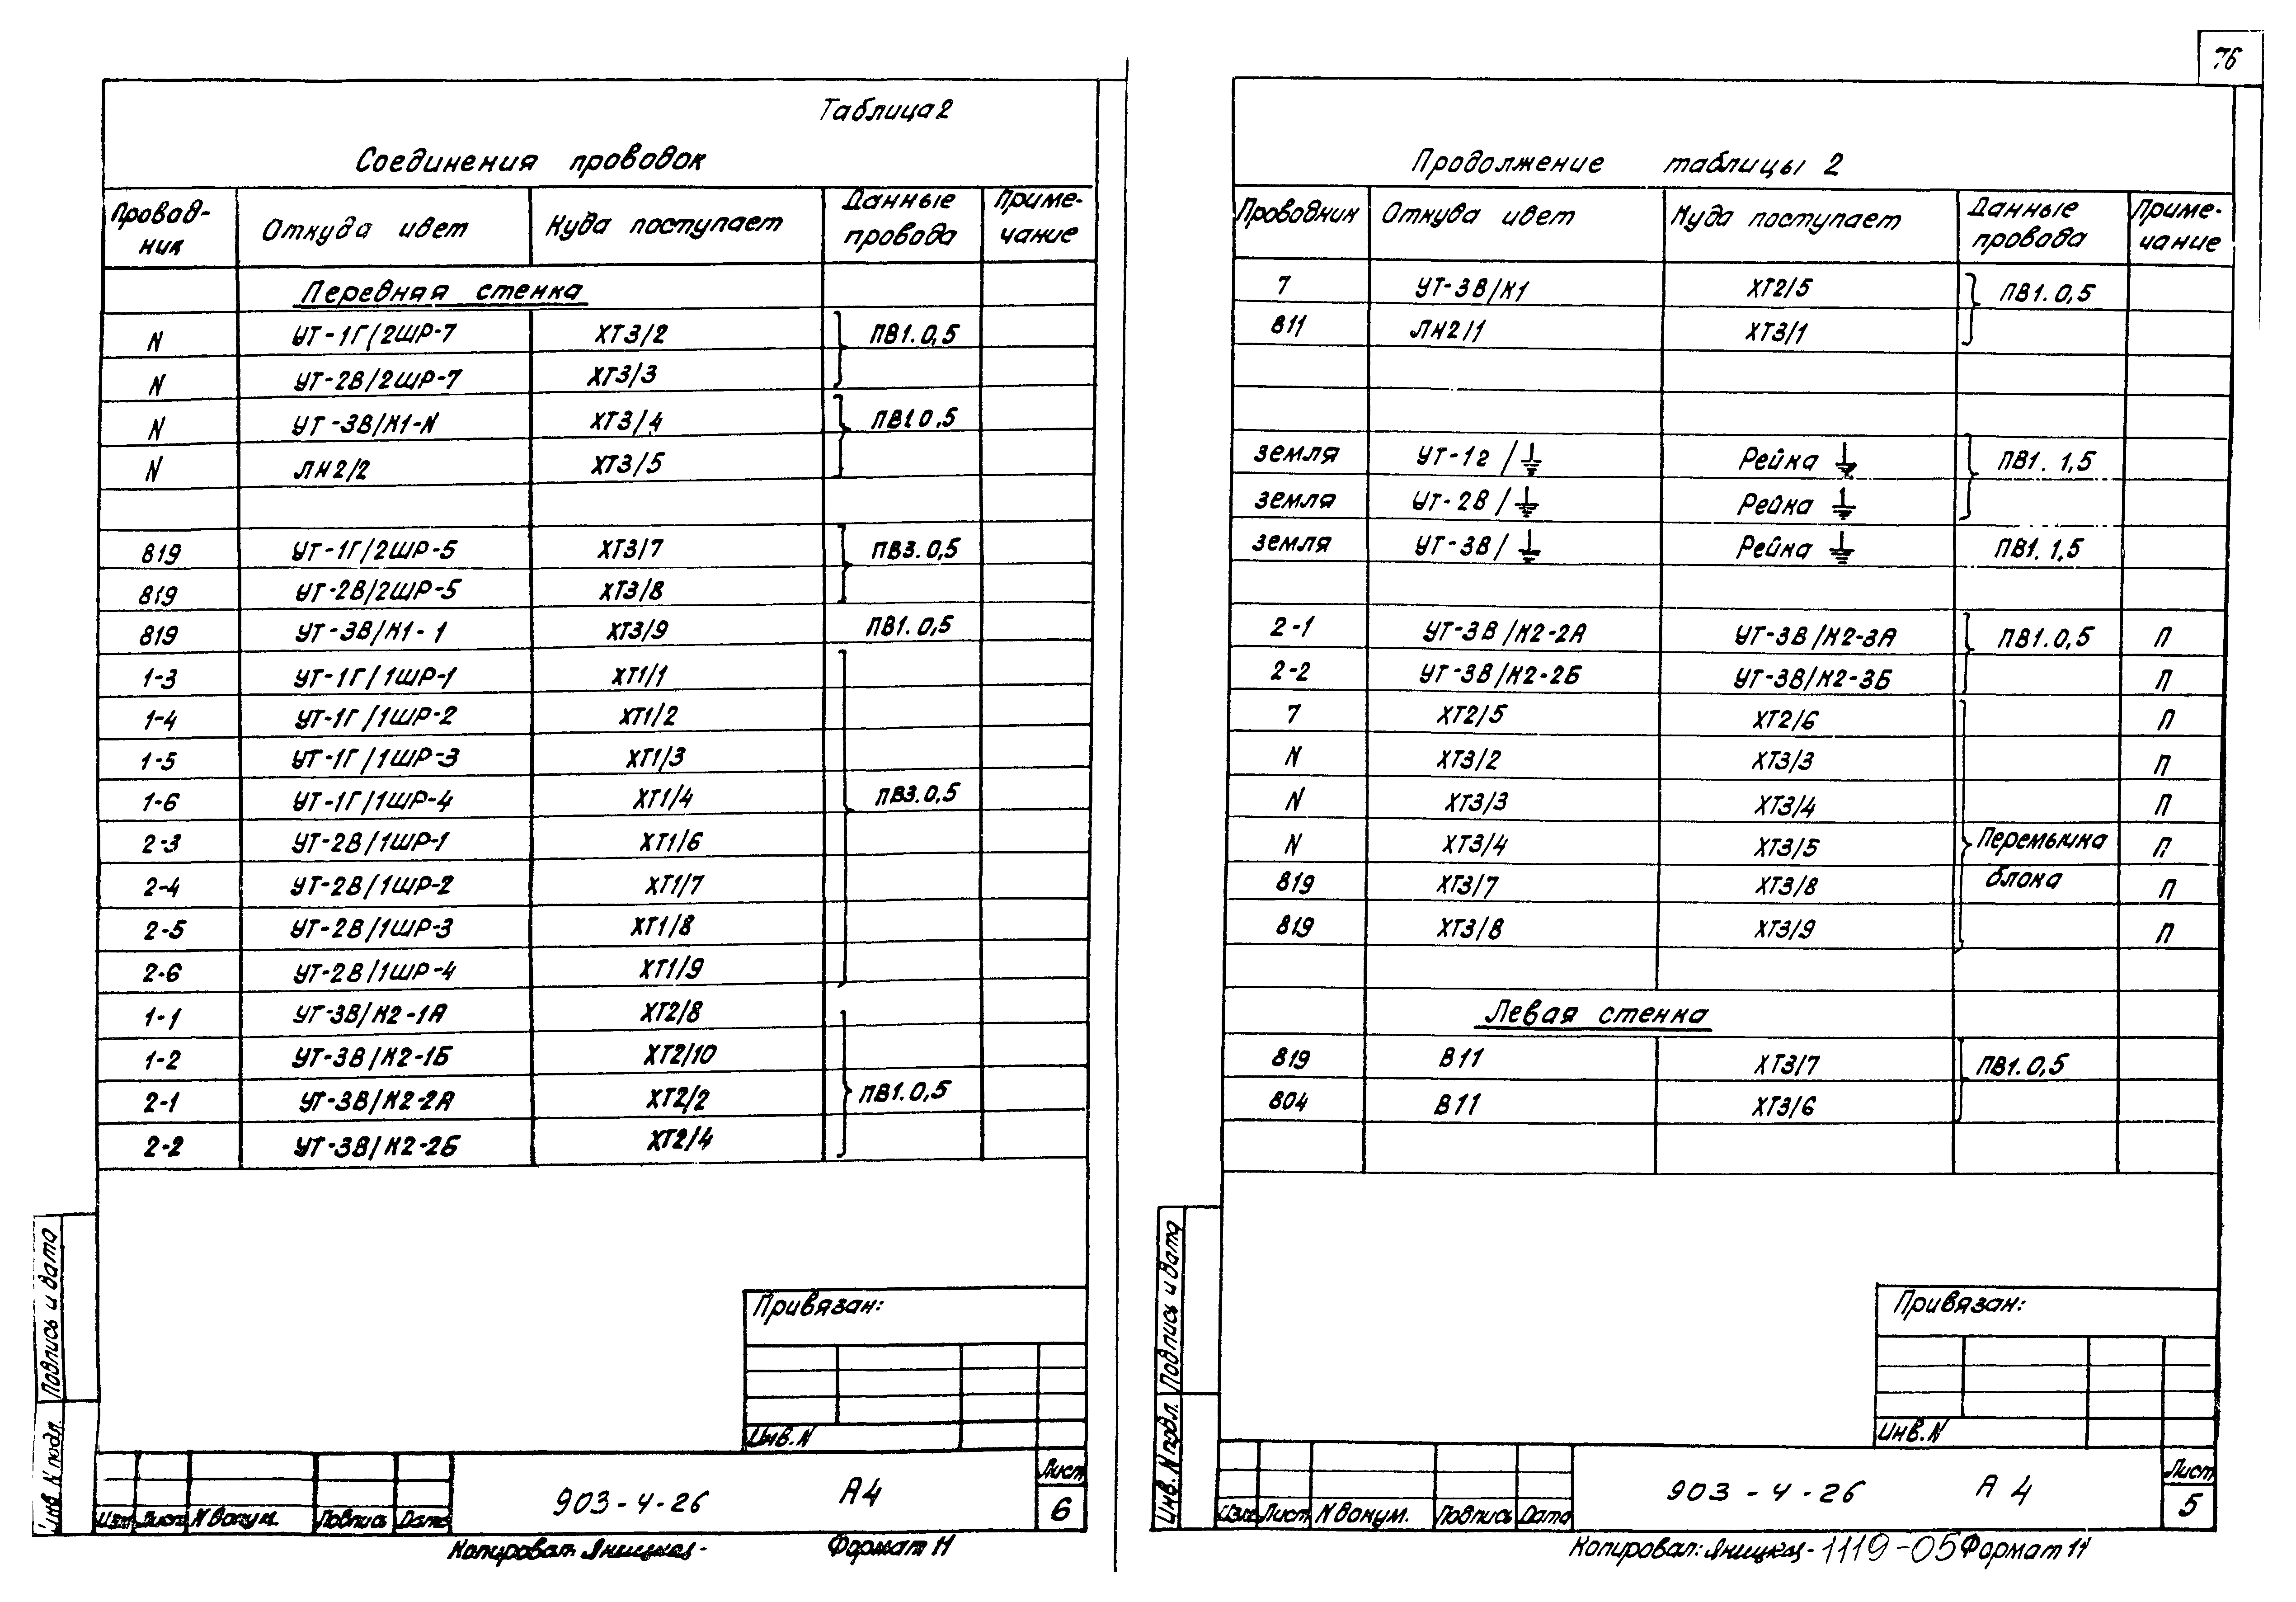 76
Таблица 2
Соединения проводок
Провод-ник Откуда идет Куда поступает Данные провода Приме-чание
Передняя стенка
N УТ-1Г/2ШР-7 ХТ3/2 ПВ1.0,5
N УТ-2В/2ШР-7 ХТ3/3
N УТ-3В/К1-N ХТ3/4 ПВ1.0,5
N ЛН2/2 ХТ3/5
819 УТ-1Г/2ШР-5 ХТ3/7 ПВ3.0,5
819 УТ-2В/2ШР-5 ХТ3/8
819 УТ-3В/К1-1 ХТ3/9 ПВ1.0,5
1-3 УТ-1Г/1ШР-1 ХТ1/1
1-4 УТ-1Г/1ШР-2 ХТ1/2
1-5 УТ-1Г/1ШР-3 ХТ1/3
1-6 УТ-1Г/1ШР-4 ХТ1/4 ПВ3.0,5
2-3 УТ-2В/1ШР-1 ХТ1/6
2-4 УТ-2В/1ШР-2 ХТ1/7
2-5 УТ-2В/1ШР-3 ХТ1/8
2-6 УТ-2В/1ШР-4 ХТ1/9
1-1 УТ-3В/К2-1А ХТ2/8
1-2 УТ-3В/К2-1Б ХТ2/10
2-1 УТ-3В/К2-2А ХТ2/2 ПВ1.0,5
2-2 УТ-3В/К2-2Б ХТ2/4
Привязан:
Инв.N
Лист
903-4-26 А4 6
Изм Лист N докум. Подпись Дата
Инв. N подл. Подпись и дата
Копировал: Яницкая- Формат 11
Продолжение таблицы 2
Проводник Откуда идет Куда поступает Данные провода Приме-чание
7 УТ-3В/К1 ХТ2/5 ПВ1.0,5
811 ЛН2/1 ХТ3/1
земля УТ-12/⏚ Рейка ⏚ ПВ1. 1,5
земля УТ-2В/⏚ Рейка ⏚
земля УТ-3В/⏚ Рейка ⏚ ПВ1. 1,5
2-1 УТ-3В/К2-2А УТ-3В/К2-3А ПВ1.0,5 П
2-2 УТ-3В/К2-2Б УТ-3В/К2-3Б П
7 ХТ2/5 ХТ2/6 П
N ХТ3/2 ХТ3/3 П
N ХТ3/3 ХТ3/4 П
N ХТ3/4 ХТ3/5 Перемычка П
819 ХТ3/7 ХТ3/8 блока П
819 ХТ3/8 ХТ3/9 П
Левая стенка
819 В11 ХТ3/7 ПВ1.0,5
804 В11 ХТ3/6
Привязан:
Инв.N
Лист
903-4-26 А4 5
Изм Лист N докум. Подпись Дата
Инв. N подл. Подпись и дата
Копировал: Яницкая- 1119-05 Формат 11